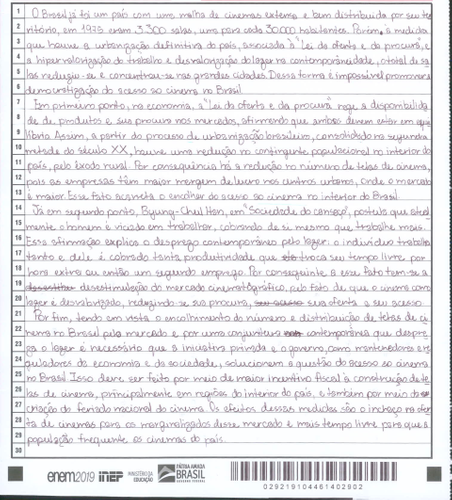 1 O Brasil já foi um país com uma malha de cinemas extensa e bem distribuída por seu ter
2 ritório, em 1975 eram 3.300 salas, uma para cada 30.000 habitantes. Porém, a medida
3 que houve a urbanização definitiva do país, associada à "Lei da oferta e da procura", e
4 a hipervalorização do trabalho e desvalorização do lazer na contemporaneidade, o total de sa
5 las reduziu-se e concentrou-se nas grandes cidades. Dessa forma é impossível promover a
6 democratização do acesso ao cinema no Brasil.
7 Em primeiro ponto, na economia, a "Lei da oferta e da procura" rege a disponibilida
8 de de produtos e sua procura nos mercados, afirmando que ambos devem estar em equi
9 líbrio. Assim, a partir do processo de urbanização brasileiro, consolidado na segunda
10 metade do século XX, houve uma redução no contingente populacional no interior do
11 país, pelo êxodo rural. Por consequência há a redução no número de telas de cinema,
12 pois as empresas têm maior margem de lucro nos centros urbanos, onde o mercado
13 é maior. Esse fato acarreta o encolher do acesso ao cinema no interior do Brasil.
14 Já em segundo ponto, Byung-Chul Han, em "Sociedade do cansaço", postula que atual
15 mente o homem é viciado em trabalhar, cobrando de si mesmo que trabalhe mais.
16 Essa afirmação explica o desprezo contemporâneo pelo lazer: o indivíduo trabalha
17 tanto e dele é cobrado tanta produtividade que troca seu tempo livre por
18 hora extra ou então um segundo emprego. Por conseguinte a esse fato tem-se a
19 desestimulação do mercado cinematográfico, pelo fato de que o cinema como
20 lazer é desvalorizado, reduzindo-se sua procura, sua oferta e seu acesso.
21 Por fim, tendo em vista o encolhimento do número e distribuição de telas de ci
22 nema no Brasil pelo mercado e por uma conjuntura contemporânea que despre
23 za o lazer é necessário que a iniciativa privada e o governo, como mantenedores e re
24 guladores da economia e da sociedade, solucionem a questão do acesso ao cinema
25 no Brasil. Isso deve ser feito por meio de maior incentivo fiscal à construção de te
26 las de cinema, principalmente em regiões do interior do país, e também por meio da
27 criação do feriado nacional do cinema. Os efeitos dessas medidas são o incremento na ofer
28 ta de cinemas para os marginalizados desse mercado e mais tempo livre para que a
29 população frequente os cinemas do país.
30
enem2019 inep MINISTÉRIO DA EDUCAÇÃO PÁTRIA AMADA BRASIL GOVERNO FEDERAL
029219104461402902